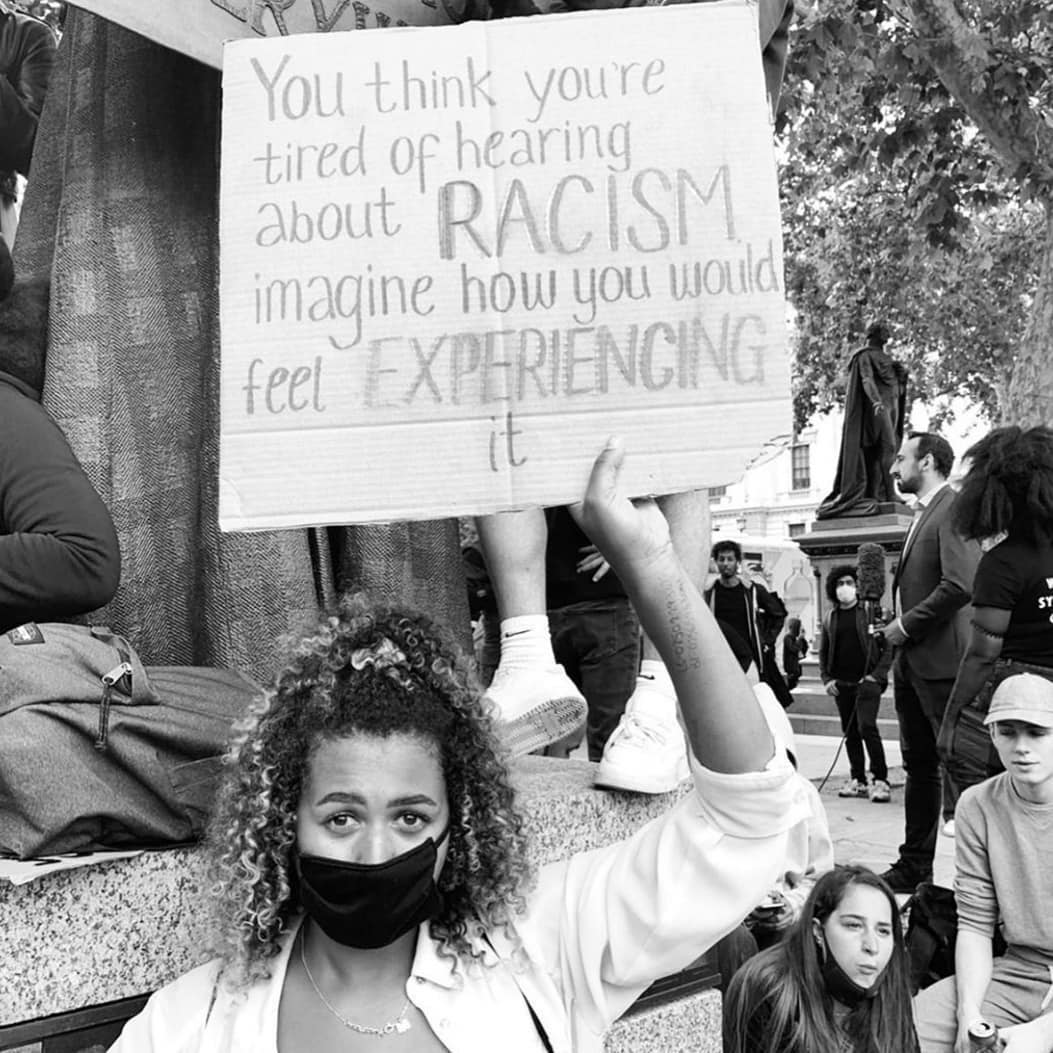 You think you're
tired of hearing
about RACISM
imagine how you would
feel EXPERIENCING
it